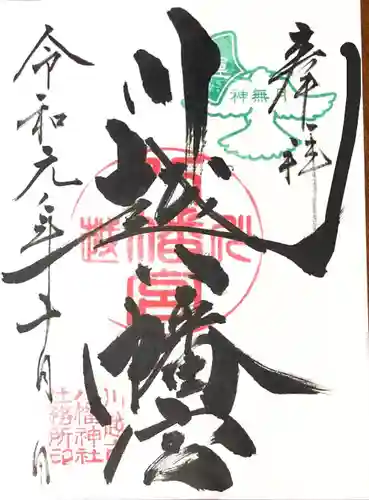 奉拝
神無月
川越八幡宮
令和元年十月 日
八幡神社
社務所印